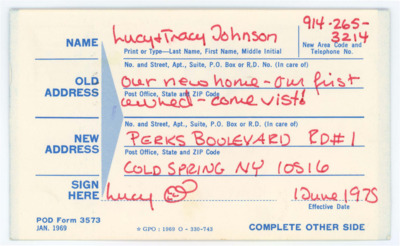 914-265-
3214
NAME
Lucy & Tracy Johnson
Print or Type—Last Name, First Name, Middle Initial
New Area Code and
Telephone No.
No. and Street, Apt., Suite, P.O. Box or R.D. No. (In care of)
OLD
ADDRESS
our new home - our first
Post Office, State and ZIP Code
owned - come visit!
No. and Street, Apt., Suite, P.O. Box or R.D. No. (In care of)
NEW
ADDRESS
PERKS BOULEVARD RD#1
Post Office, State and ZIP Code
COLD SPRING NY 10516
SIGN
HERE
Lucy
1 June 1975
Effective Date
POD Form 3573
JAN. 1969
GPO : 1969 O - 330-743
COMPLETE OTHER SIDE